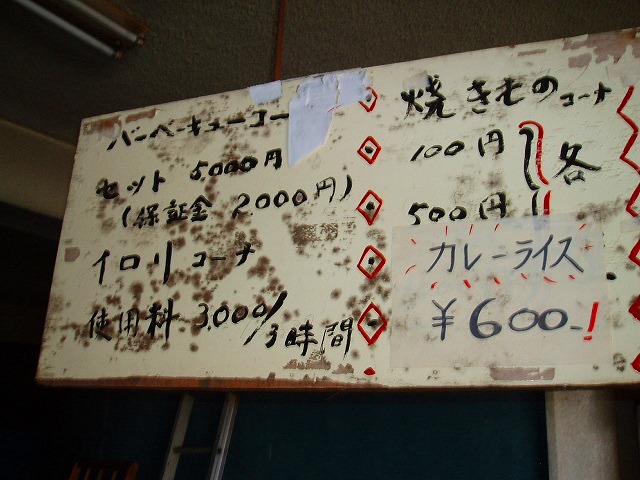 バーベキューコー
セット 5,000円
(保証金 2,000円)
イロリ コーナ
使用料 3,000/3時間
焼きものコーナ
100円 〜 各
500円
カレーライス
¥600-!